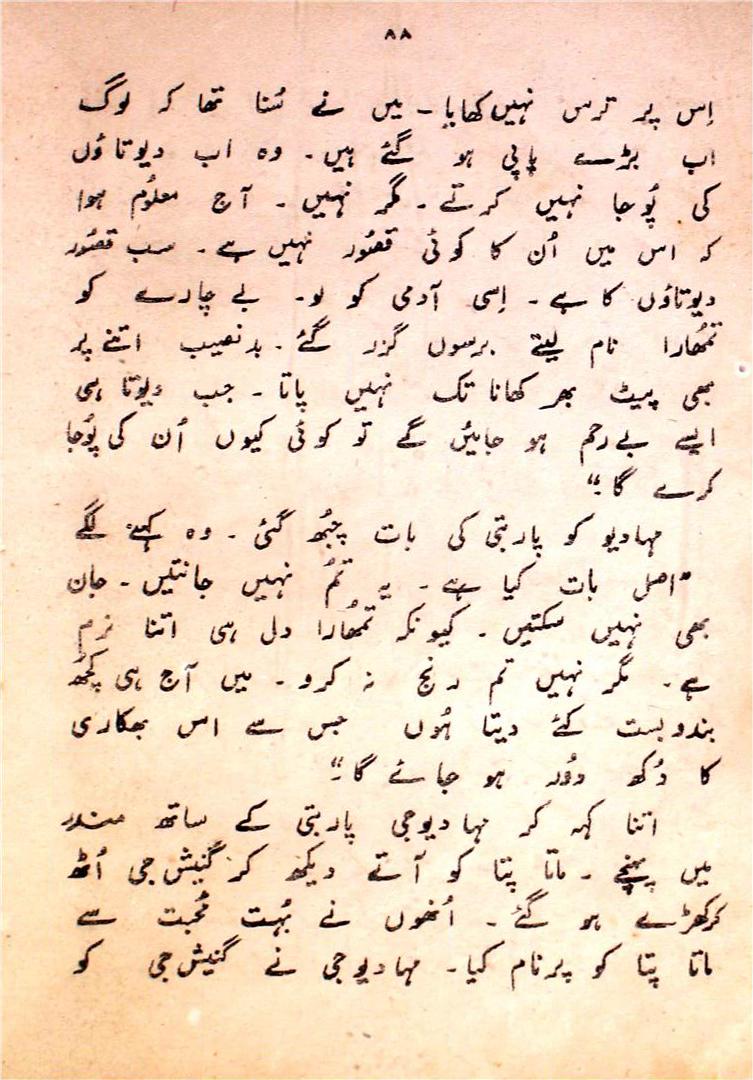 ۸۸
اِس پر ترس نہیں کھایا۔ میں نے سُنا تھا کہ لوگ
اب بڑے پاپی ہو گئے ہیں۔ وہ اب دیوتاؤں
کی پُوجا نہیں کرتے۔ مگر نہیں۔ آج معلُوم ہوا
کہ اس میں اُن کا کوئی قصُور نہیں ہے۔ سب قصُور
دیوتاؤں کا ہے۔ اِسی آدمی کو لو۔ بے چارے کو
تمُھارا نام لیتے برسوں گزر گئے۔ بدنصیب اتنے پر
بھی پیٹ بھر کھانا تک نہیں پاتا۔ جب دیوتا ہی
ایسے بے رحم ہو جائیں گے تو کوئی کیوں اُن کی پُوجا
کرے گا؟“
مہادیو کو پاربتی کی بات چبُھ گئی۔ وہ کہنے لگے
”اصل بات کیا ہے۔ یہ تمُ نہیں جانتیں۔ جان
بھی نہیں سکتیں۔ کیونکہ تمُھارا دل ہی اتنا نرم
ہے۔ مگر نہیں تم رنج نہ کرو۔ میں آج ہی کچُھ
بندوبست کئے دیتا ہُوں جس سے اس بھکاری
کا دُکھ دوُر ہو جائے گا۔“
اتنا کہہ کر مہادیوجی پاربتی کے ساتھ مندر
میں پہنچے۔ ماتا پتا کو آتے دیکھ کر گنیش جی اُٹھ
کرکھڑے ہو گئے۔ اُنھوں نے بُہت مُحبت سے
ماتا پتا کو پرنام کیا۔ مہادیوجی نے گنیش جی کو